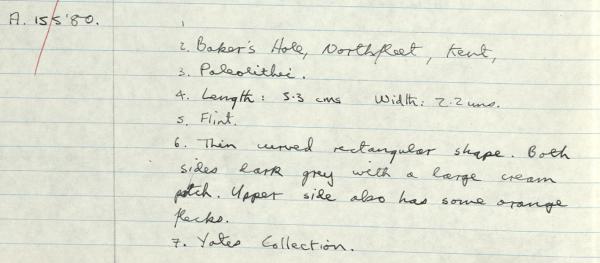 A. 155'80.
1
2. Baker's Hole, Northfleet, Kent,
3. Paleolithic.
4. Length: 5.3 cms Width: 2.2 cms.
5. Flint.
6. Thin curved rectangular shape. Both
sides dark grey with a large cream
patch. Upper side also has some orange
flecks.
7. Yates Collection.